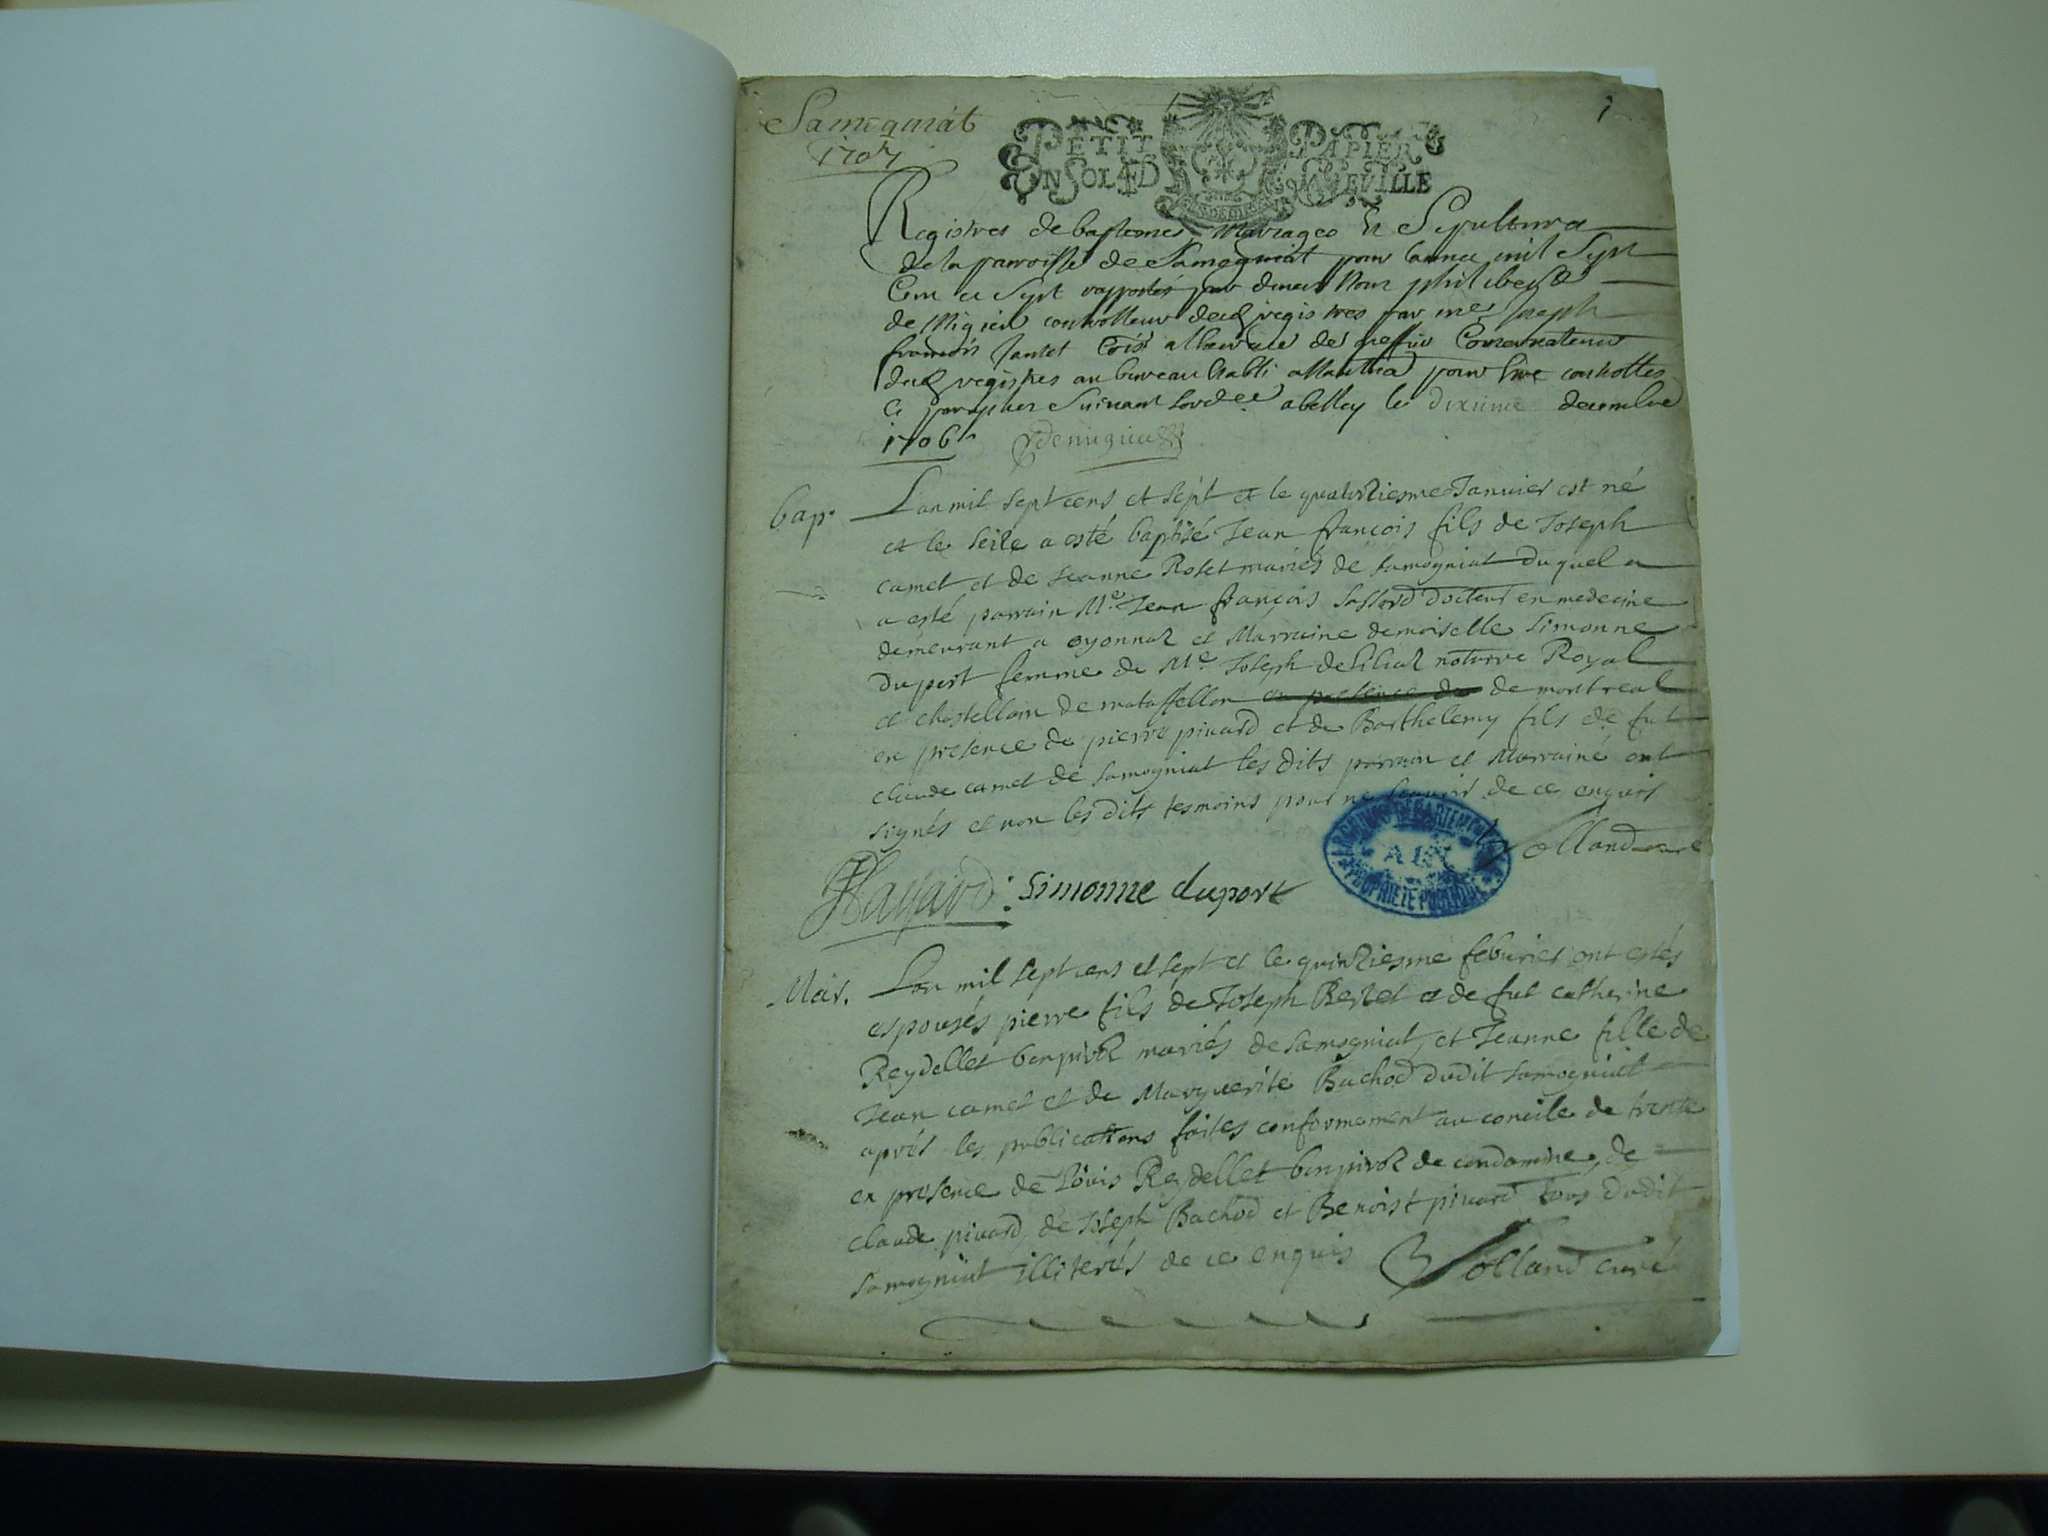 Samognat
1707
1
PETIT PAPIER
UN SOL 4D LA FEVILLE
Registres de baptemes, Mariages Et Sepultura
de la parroisse de Samognat pour lannee mil Sept
Cent et Sept rapportés par devant Nous philibert
de Migieu controlleur desd registres par me Joseph
françois Jantet des greffier Conservateur
desd registres au bureau Etabli a Nantua pour Etre controllés
et parapher Suivant lord a belley le dixieme decembre
1706
demigieu
bap. Lan mil sept cens et sept et le quatorziesme Janvier est né
et le seize a esté baptisé Jean françois fils de Joseph
camet et de Jeanne Roset mariés de samogniat duquel a
a esté parrain Me Jean françois docteur en medecine
demeurant a oyonnaz et Marraine demoiselle simonne
duport femme de Me Joseph de notaire Royal
et chastellain de mataffellon en presence de de montreal
en presence de pierre pivard et de Barthelemy fils de fut
claude camet de samogniat les dits parrain et Marraine ont
signés et non les dits tesmoins pour ne scavoir de ce enquis
Solland curé
simonne duport
ARCHIVES DEPARTEMENTALES
AIN
PROPRIETE PUBLIQUE
Mar. Lan mil sept cens et sept et le quinziesme febvrier ont estés
espousés pierre fils de Joseph Bertet et de fut catherine
Reydellet bonpivoz mariés de samogniat, et Jeanne fille de
Jean camet et de Marguerite Bachod dudit samogniat
aprés les publications faites conformement au concile de trente
en presence de Louis Reydellet bonpivoz de condamine, de
claude pivard, de Joseph Bachod et Benoist pivard tous dudit
samogniat illiterés de ce enquis Solland curé